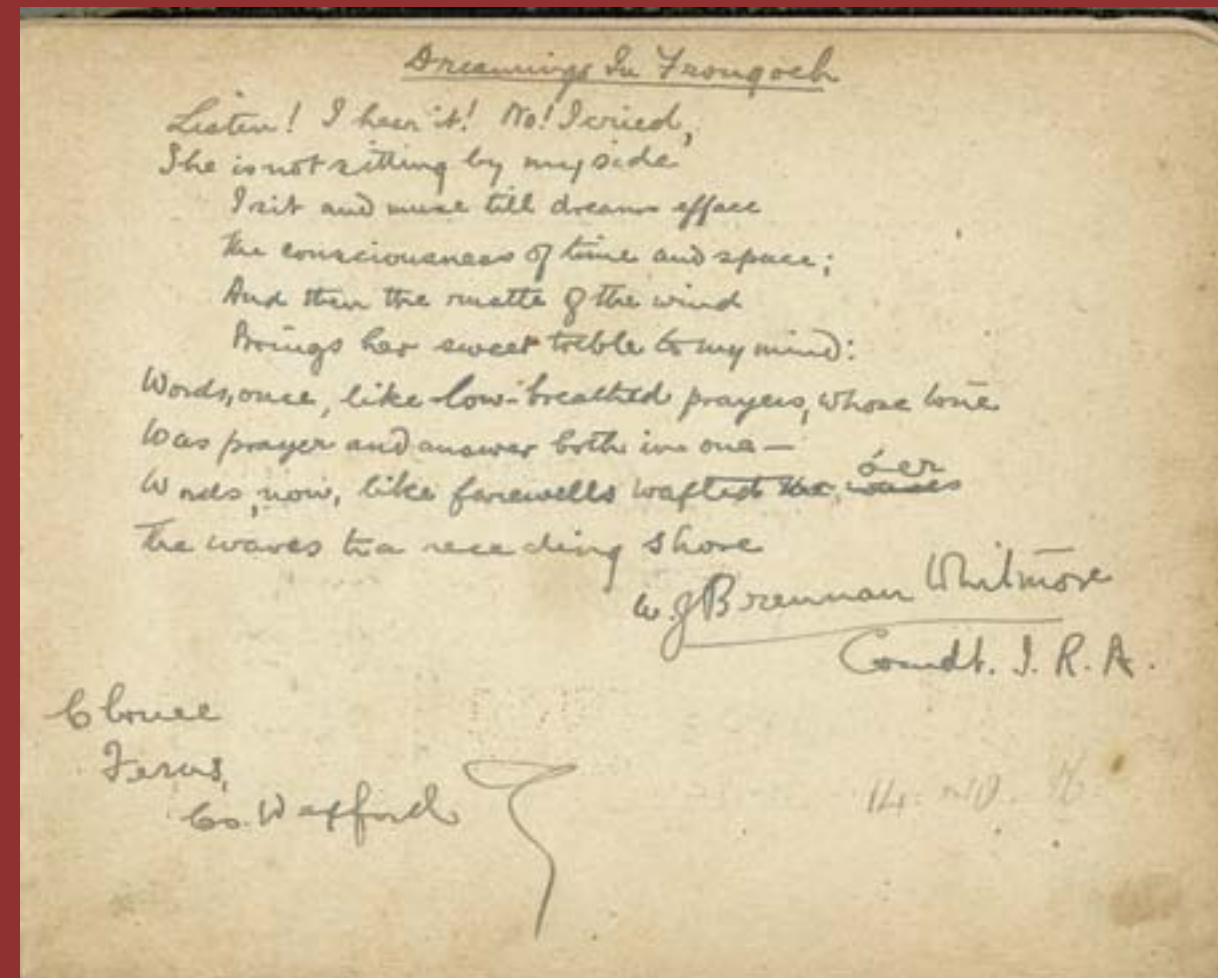 Dreamings In Frongoch
Listen! I hear it! No! I cried,
She is not sitting by my side
I sit and muse till dreams efface
The consciousness of time and space;
And then the rustle of the wind
Brings her sweet treble to my mind:
Words, once, like low-breathed prayers, whose tone
Was prayer and answer both in one—
Words, now, like farewells wafted o'er
The waves to a receding shore
W. J Brennan Whitmore
Comdt. I. R. A.
Clonee
Ferns,
Co. Wexford
14.